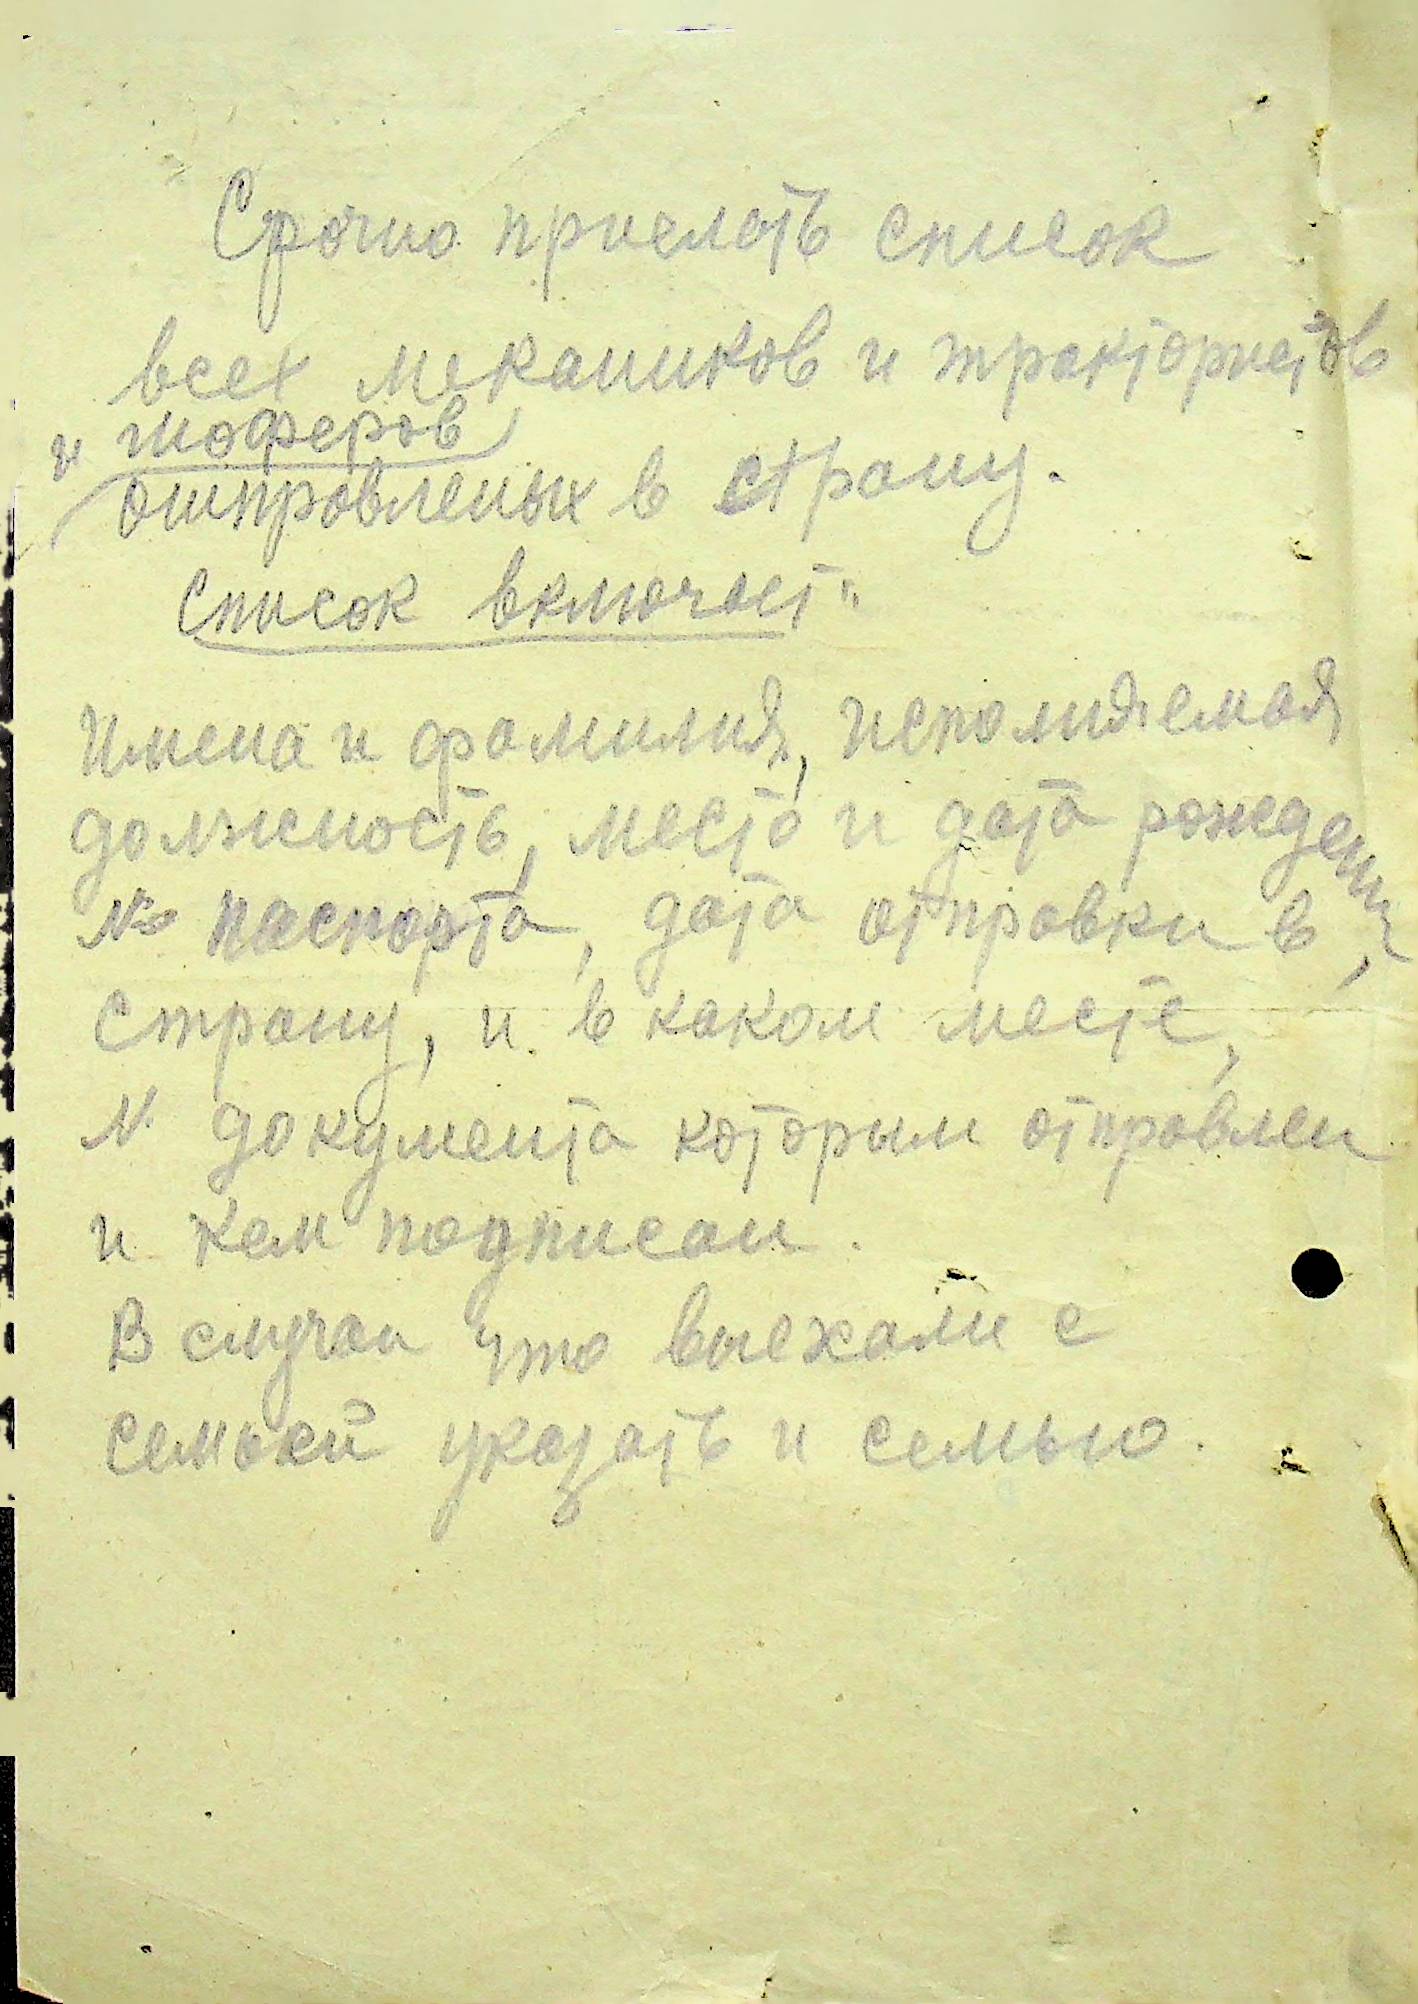 Срочно прислать список
всех механиков и трактористов
и шоферов
отправленых в страну.
Список включает:
Имена и фамилия, исполняемая
должность, место и дата рождения,
№ паспорта, дата отправки в
страну, и в каком месте,
N. документа которым отправлен
и кем подписан.
В случаи что выехали с
семьей указать и семью.